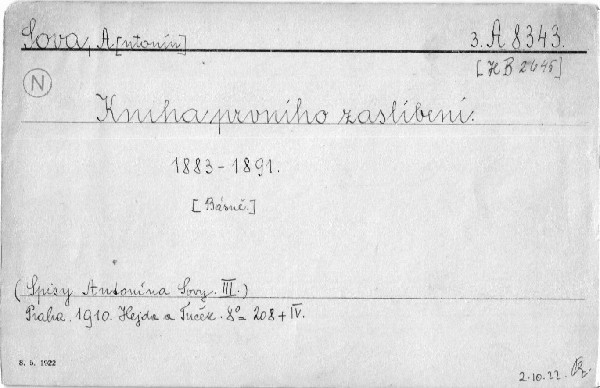 Sova, A[ntonín] 3. A 8343.
[H B 2645]
N
Kniha prvního zaslíbení.
1883-1891.
[Básně.]
(Spisy Antonína Sovy. III.)
Praha. 1910. Hejda a Tuček. 8º= 208 + IV.
8. 6. 1922
2.10.22.